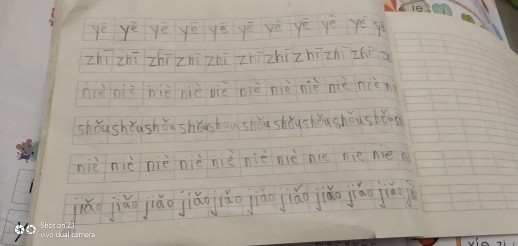 yē yē yē yē yē yē yē yē yē yē
zhī zhī zhī zhī zhī zhī zhī zhī zhī zhī
niè niè niè niè niè niè niè niè niè niè
shǒu shǒu shǒu shǒu shou shǒu shǒu shǒu shǒu shǒu
niè niè niè niè niè niè niè nie nie nie
jiǎo jiǎo jiǎo jiǎo jiǎo jiǎo jiǎo jiǎo jiǎo jiǎo
Shot on Z1
vivo dual camera